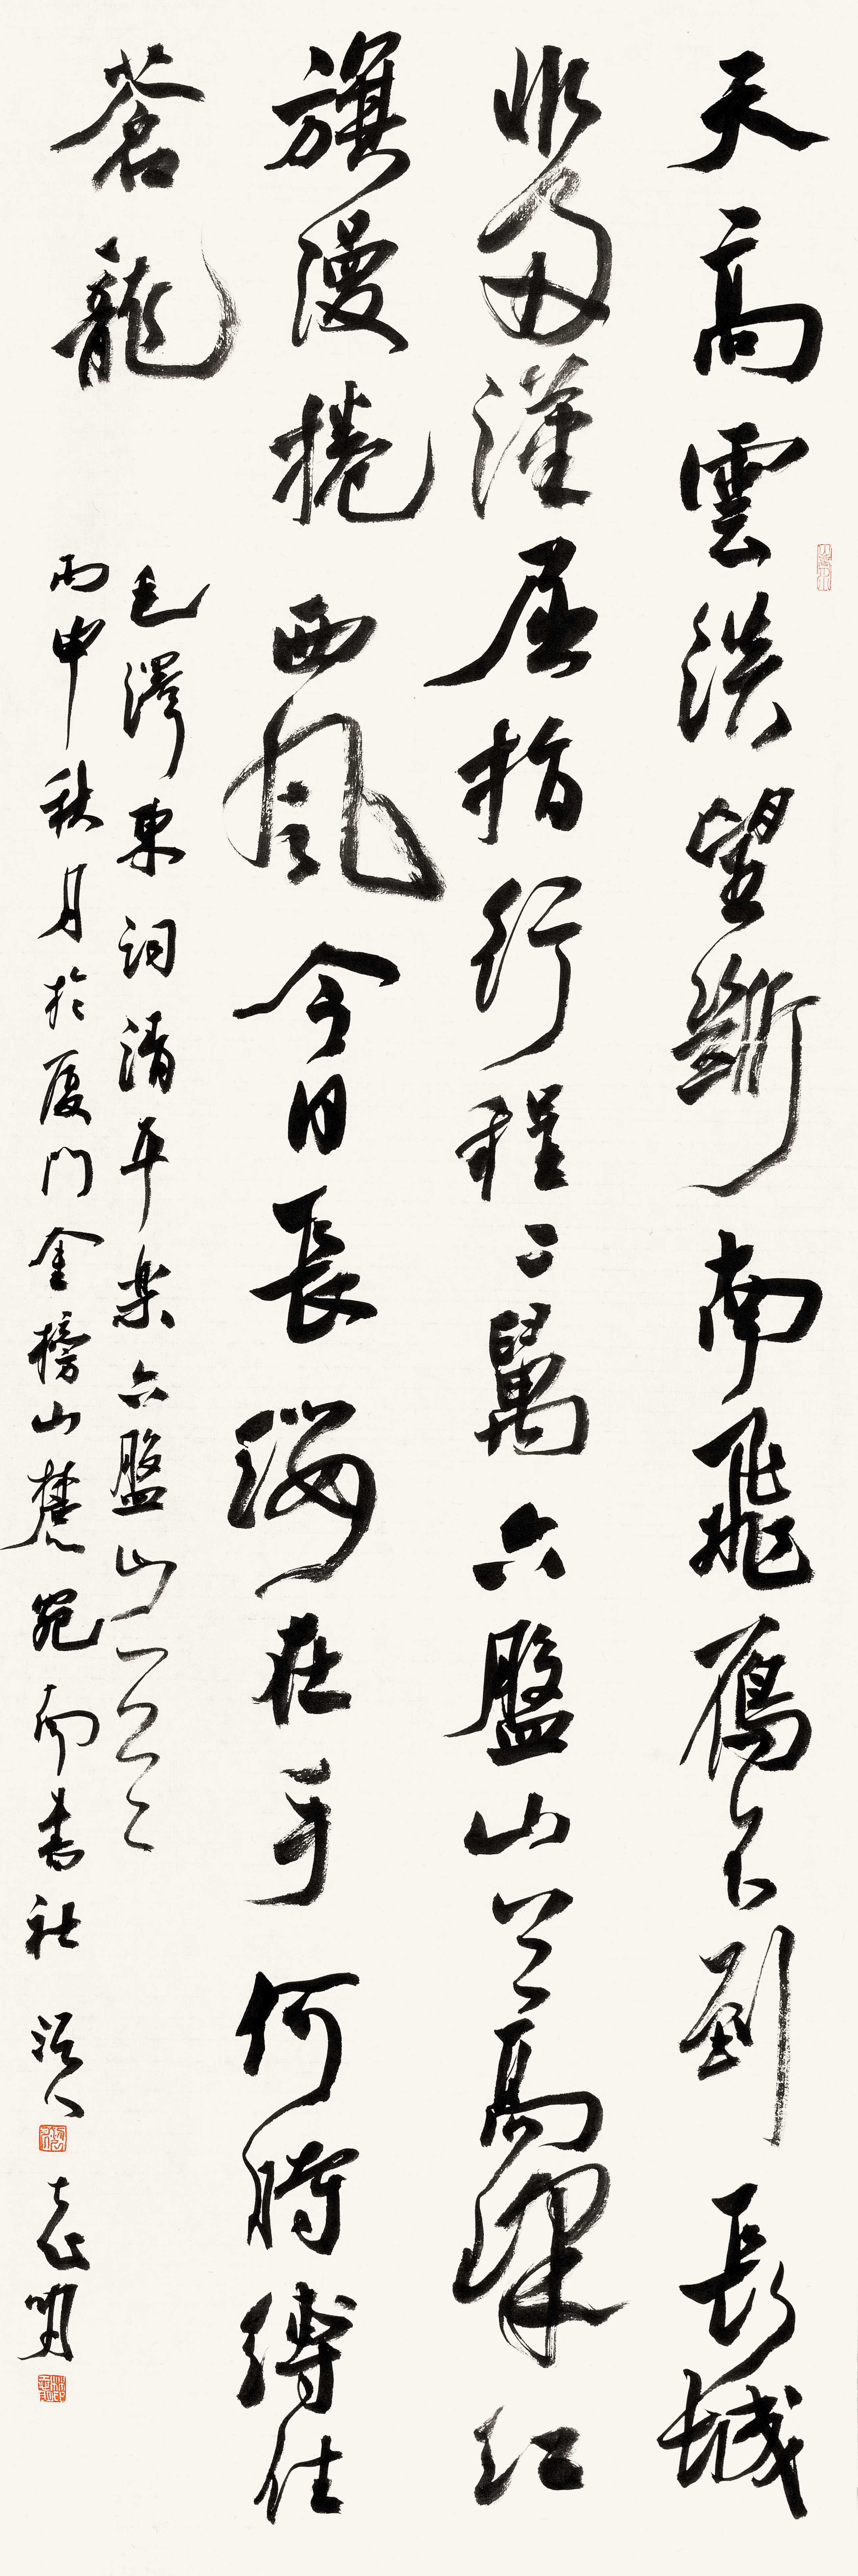 天高雲淡望斷南飛雁不到長城
非好漢屈指行程二萬六盤山上高峰紅
旗漫捲西風今日長纓在手何時縛住
蒼龍
毛澤東詞清平樂六盤山一首
丙申秋月於厦門金榜山麓宛南書社
志明